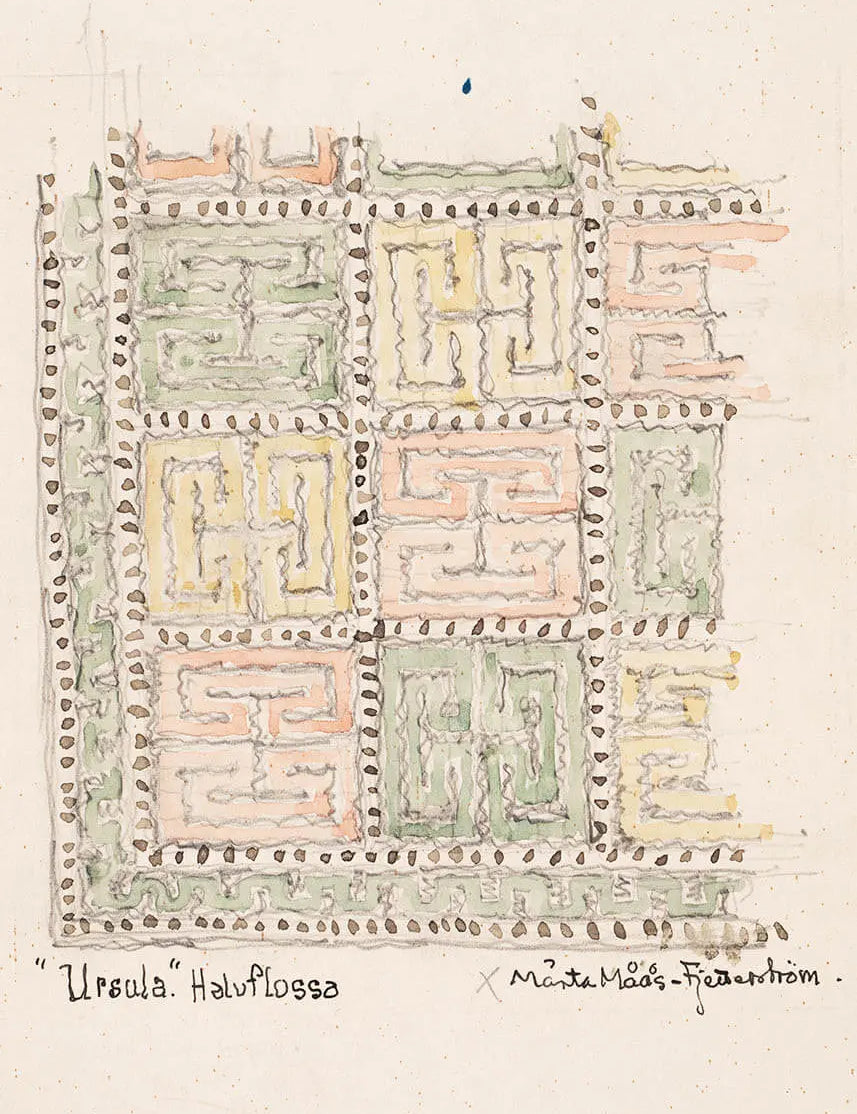 "Ursula." Halvflossa X Märta Måås-Fjetterström.